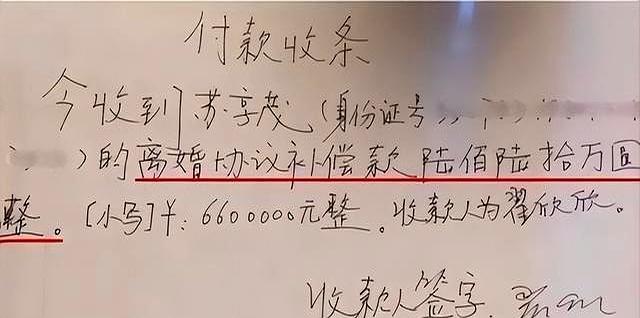 付款收条
今收到苏享茂（身份证号
）的离婚协议补偿款陆佰陆拾万圆
整。[小写]¥：6600000元整。收款人为翟欣欣。
收款人签字